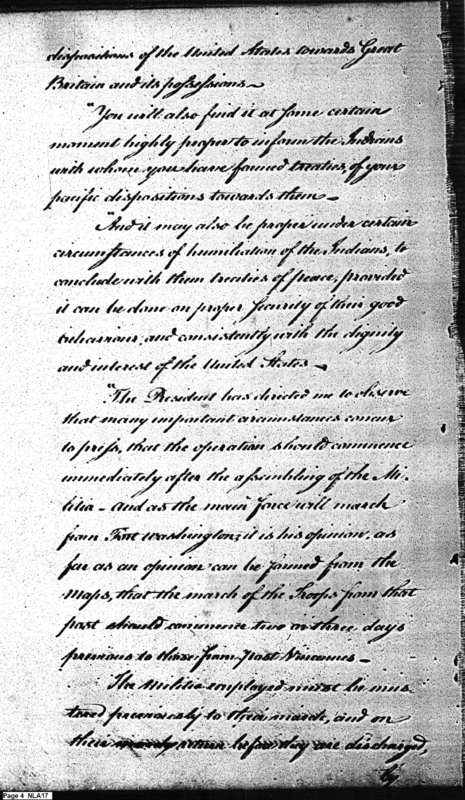 dispositions of the United States towards Great
Britain and its possessions—
"You will also find it at some certain
moment highly proper to inform the Indians
with whom you have formed treaties, of your
pacific dispositions towards them—
"And it may also be proper under certain
circumstances of humiliation of the Indians, to
conclude with them treaties of peace, provided
it can be done on proper security of their good
behaviour, and consistently with the dignity
and interest of the United States—
"The President has directed me to observe
that many important circumstances concur
to press, that the operation should commence
immediately after the assembling of the Mi-
litia— and as the main force will march
from Fort Washington; it is his opinion, as
far as an opinion can be formed from the
maps, that the march of the Troops from that
post should commence two or three days
previous to those from Post Vincennes—
The Militia employed must be mus
tered previously to their march, and on
their return before they are discharged,
by
Page 4 NLA17